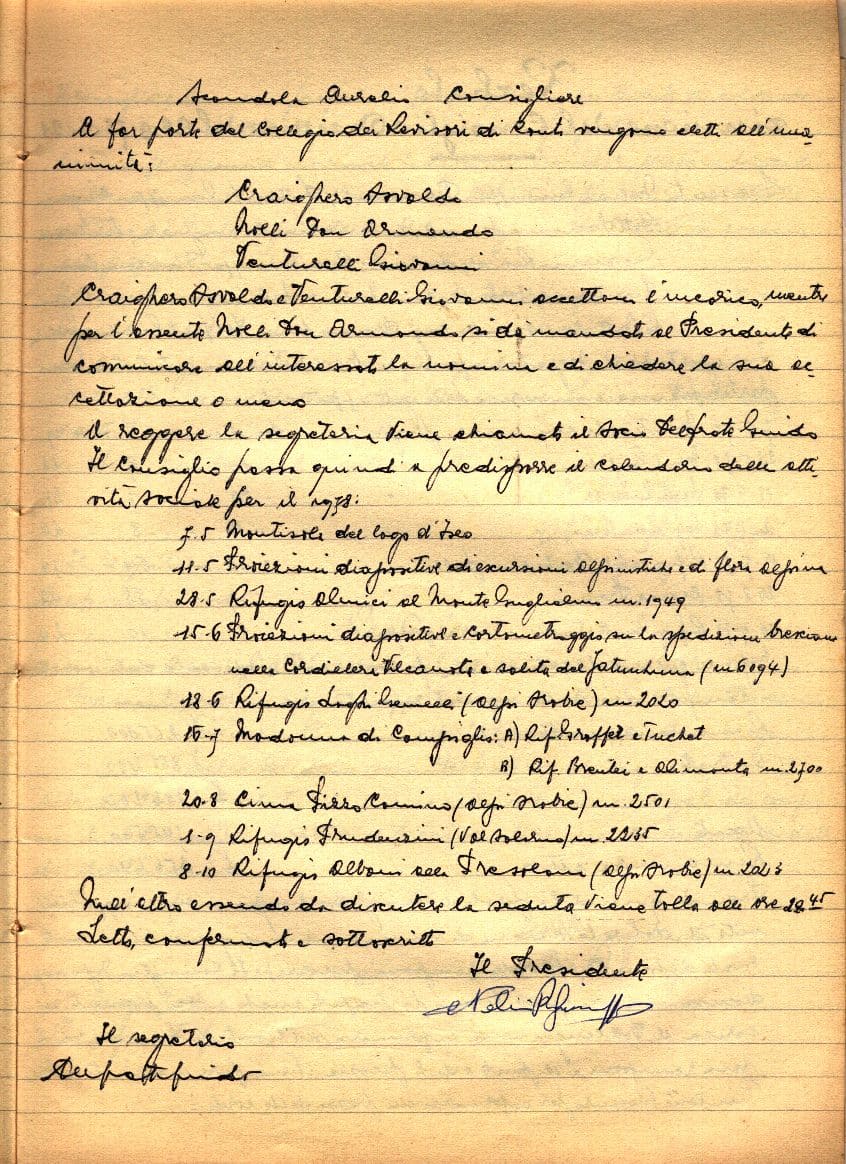 Scandola Aurelio Consigliere
A far parte del Collegio dei Revisori di Conti vengono eletti all'una-
nimità:
Craighero Osvaldo
Nolli Don Armando
Venturelli Giovanni
Craighero Osvaldo e Venturelli Giovanni accettano l'incarico, mentre
per l'assente Nolli Don Armando si dà mandato al Presidente di
comunicare all'interessato la nomina e di chiedere la sua ac-
cettazione o meno
A reggere la segreteria viene chiamato il socio Guido
Il Consiglio passa quindi a predisporre il calendario delle atti-
vità sociale per il 1978:
7.5 Montisola del lago d'Iseo
11.5 Proiezioni diapositive di escursioni alpinistiche e di flora alpina
28.5 Rifugio Almici al Monte Guglielmo m. 1949
15-6 Proiezioni diapositive e cortometraggio su la spedizione bresciana
nella Cordiliera Vilcanota e salita del Jatunhuma (m 6094)
18-6 Rifugio Laghi Gemelli (Alpi Orobie) m 2020
16-7 Madonna di Campiglio: A) Rif. Graffer e Tuchet
B) Rif. Brentei e Alimonta m. 2700
20-8 Cima Pizzo Camino (Alpi Orobie) m. 2501
1-9 Rifugio Prudenzini (Val Salarno) m. 2235
8-10 Rifugio Albani alla Presolana (Alpi Orobie) m 2023
Null'altro essendo da discutere la seduta viene tolta alle ore 45
Letto, confermato e sottoscritto
Il Presidente
Il segretario